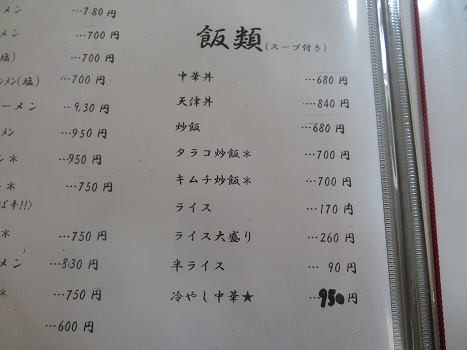 メン …780円
…700円
塩) …700円
ンメン(塩) …700円
ーメン …930円
メン …950円
ン* …950円
* …750円
ば辛!!〉
* …750円
メン …830円
* …750円
…600円
飯類(スープ付き)
中華丼 …680円
天津丼 …840円
炒飯 …680円
タラコ炒飯* …700円
キムチ炒飯* …700円
ライス …170円
ライス大盛り …260円
半ライス … 90円
冷やし中華★ …950円